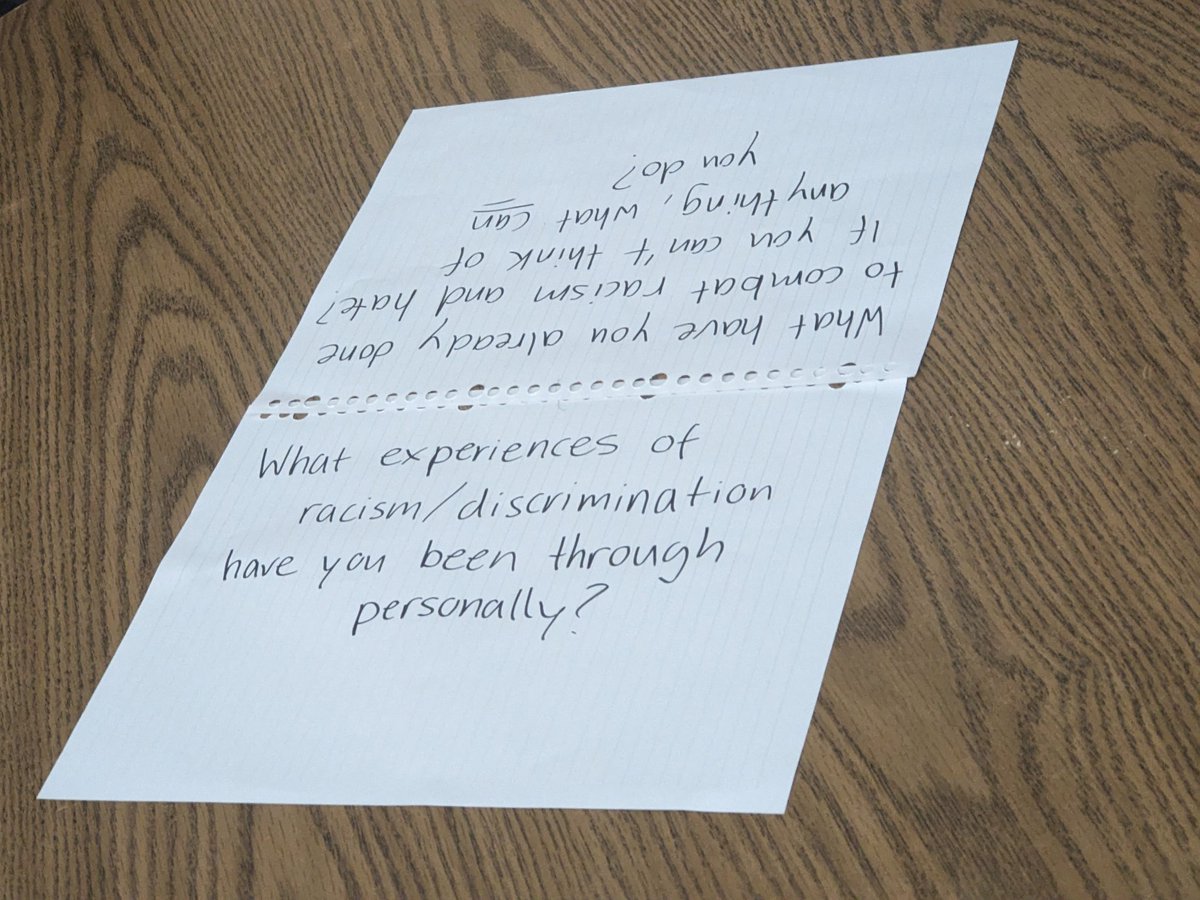 What have you already done
to combat racism and hate?
If you can't think of
anything, what can
you do?
What experiences of
racism/discrimination
have you been through
personally?